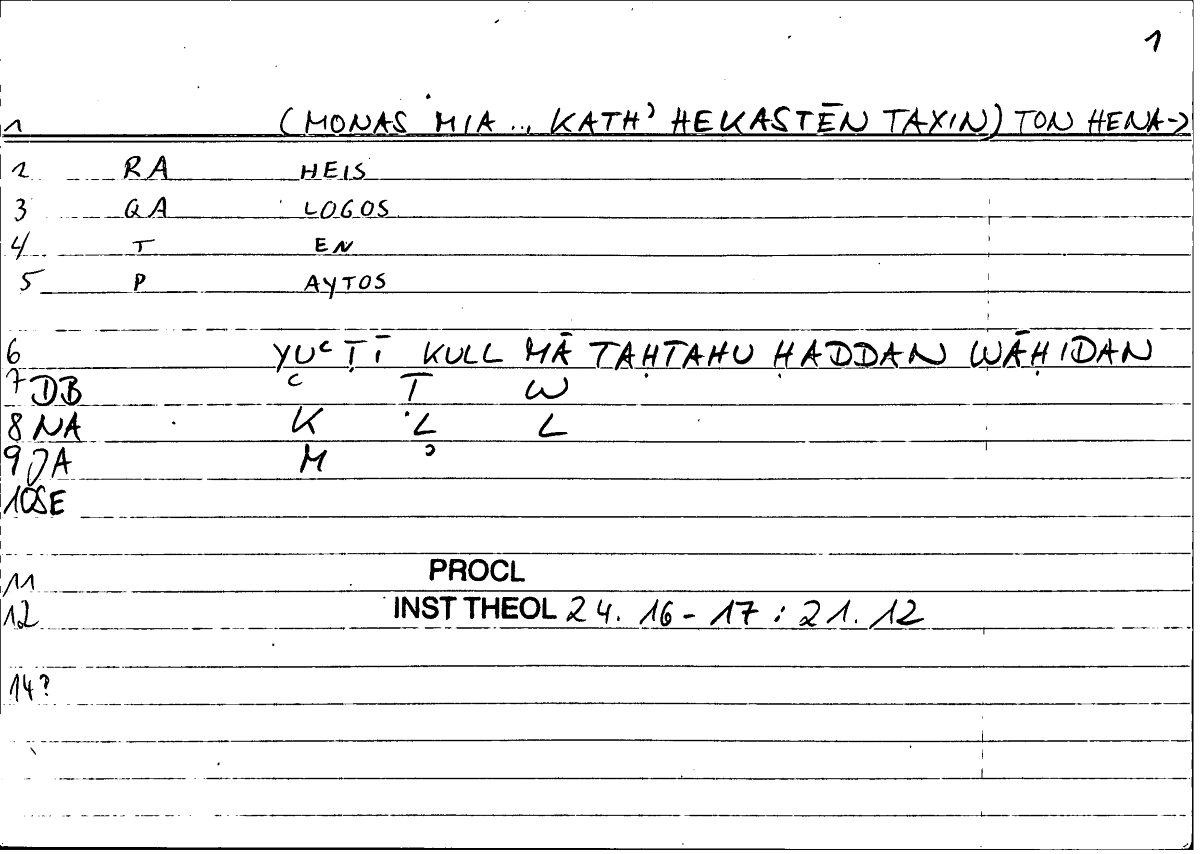 1
1 (MONAS MIA ... KATH' HEKASTĒN TAXIN) TON HENA->
2 RA HEIS
3 QA LOGOS
4 T EN
5 P AYTOS
6 YUʿṬĪ KULL MĀ TAḤTAHU ḤADDAN WĀḤIDAN
7 DB ʿ Ṭ W
8 NA K L L
9 JA M ʾ
10 SE
11 PROCL
12 INST THEOL 24. 16-17 : 21. 12
14?